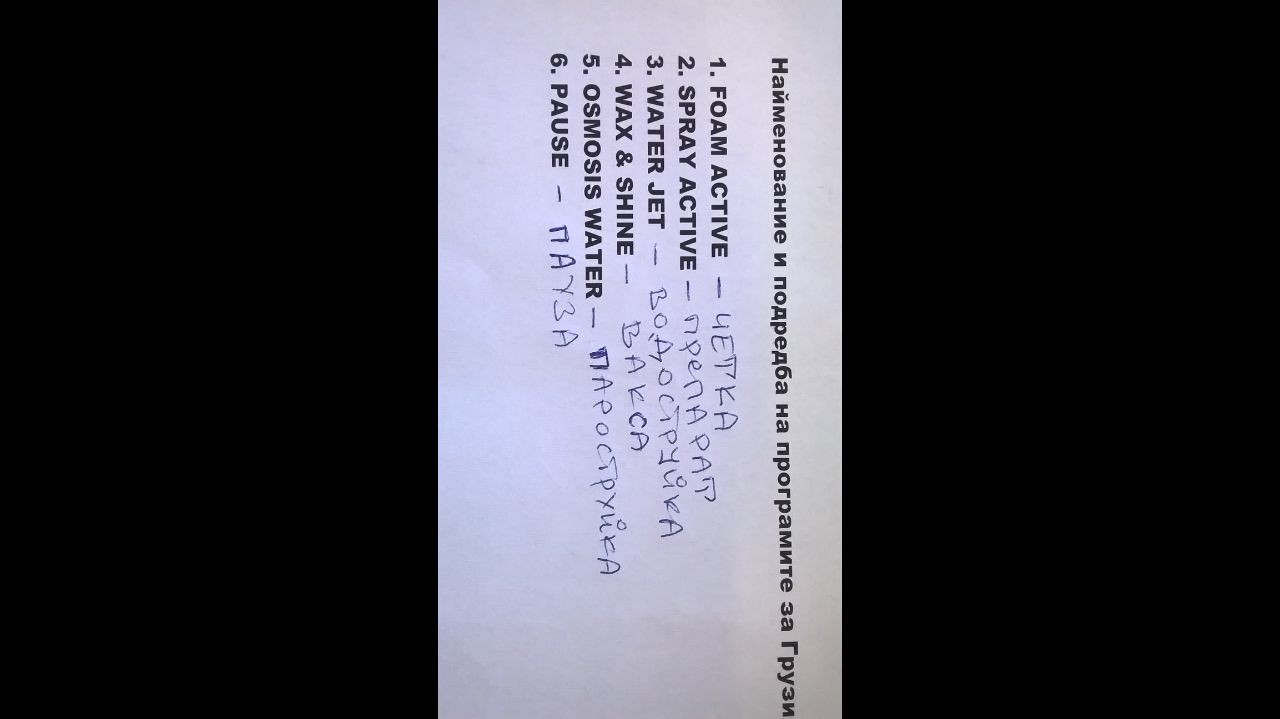 Найменование и подредба на програмите за Грузи
1. FOAM ACTIVE – ЧЕТКА
2. SPRAY ACTIVE – ПРЕПАРАТ
3. WATER JET – ВОДОСТРУЙКА
4. WAX & SHINE – ВАКСА
5. OSMOSIS WATER – ПАРОСТРУЙКА
6. PAUSE – ПАУЗА